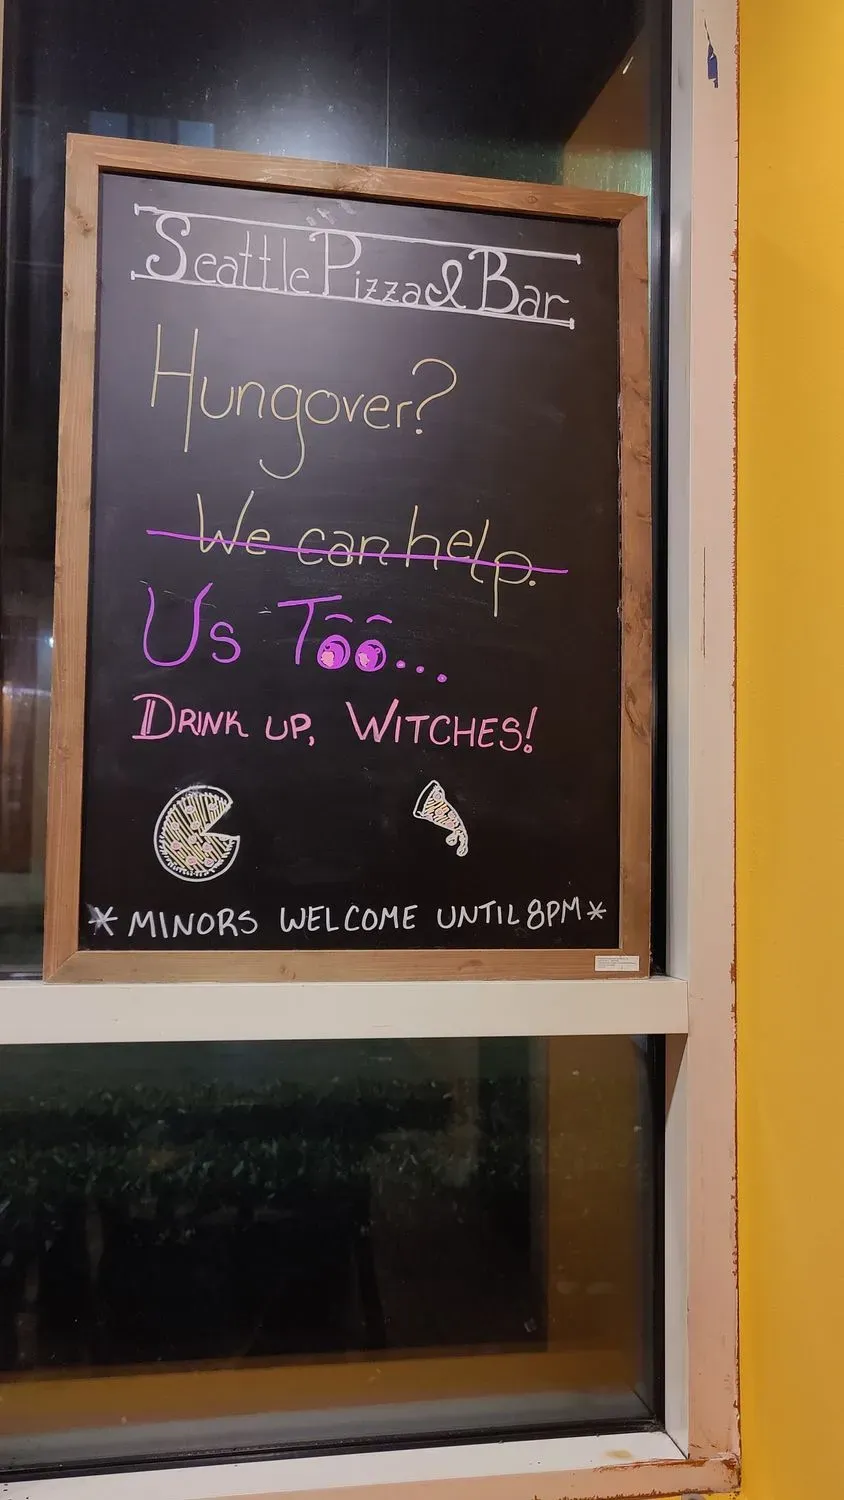 Seattle Pizza & Bar
Hungover?
We can help.
Us Too...
DRINK UP, WITCHES!
* MINORS WELCOME UNTIL 8PM *